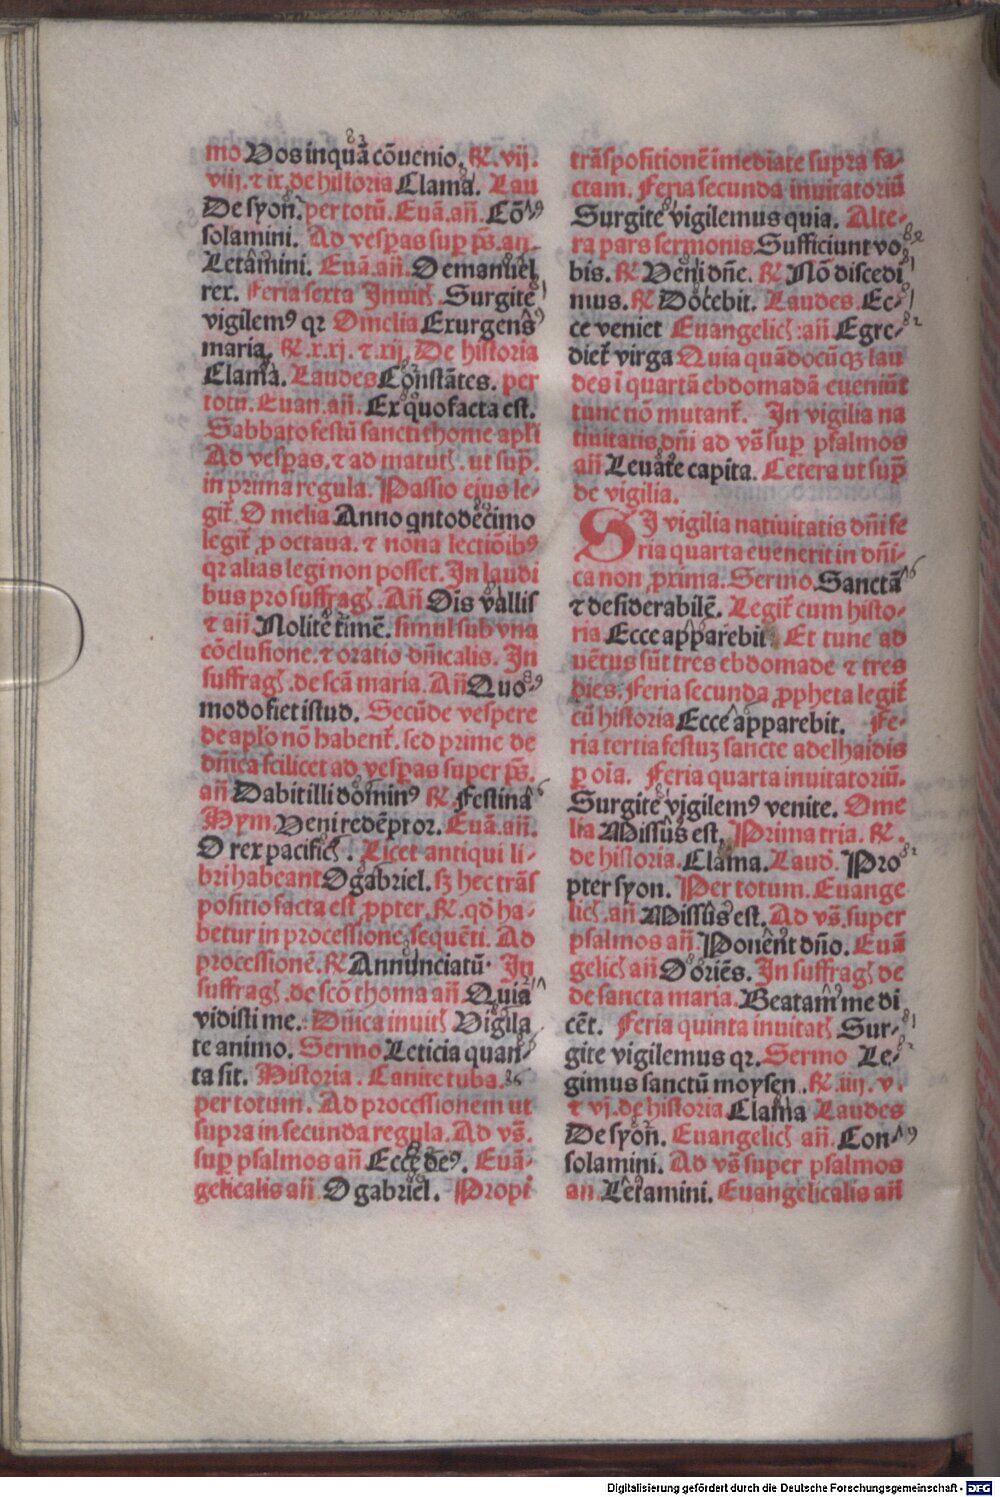 mo Vos inquā cōuenio. ꝶ. vij.
viij. ⁊ ix. de historia Clama. Lau
De syon. per totū. Euā. añ. Cō
solamini. Ad vesp̄as sup̄ p̄s. an.
Letamini. Euā. añ. O emanuel
rex. Feria sexta Inuit̄ Surgite
vigilemꝰ qr Omelia Exurgens
maria. ꝶ. x. xj. ⁊ xij. De historia
Clama. Laudes Constātes. per
totū. Euan. añ. Ex quo facta est.
Sabbato festū sancti thome apl̄i
Ad vesp̄as. ⁊ ad matut̄. ut sup̄.
in prima regula. Passio eius le-
git̄. Omelia Anno qntodecimo
legit̄ ꝓ octaua. ⁊ nona lectiōibꝰ
qr alias legi non posset. In laudi
bus pro suffraḡ. Añ Ois vallis
⁊ añ Nolite timē. simul sub vna
cōclusione. ⁊ oratio dñicalis. In
suffraḡ. de scā maria. Añ Quo-
modo fiet istud. Secūde vespere
de apl̄o nō habent̄. sed prime de
dñica scilicet ad vesp̄as super p̄s.
añ Dabit illi dominꝰ ꝶ Festina
Hym. Veni redēptor. Euā. añ.
O rex pacific̄. Licet antiqui li-
bri habeant O gabriel. sꝫ hec trās
positio facta est ꝓpter. ꝶ. qd̄ ha-
betur in processione sequēti. Ad
processionē. ꝶ Annunciatū. In
suffraḡ. de scō thoma añ Quia
vidisti me. Dñica inuit̄ Vigila
te animo. Sermo Leticia quan-
ta sit. Historia. Canite tuba.
per totum. Ad processionem ut
supra in secunda regula. Ad vs̄.
sup̄ psalmos añ Ecce deꝰ. Euā-
gelicalis añ O gabriel. Propt̄
trāspositionē imediate supra fa-
ctam. Feria secunda inuitatoriū
Surgite vigilemus quia. Alte-
ra pars sermonis Sufficiunt vo
bis. ꝶ Veni dñe. ꝶ Nō discedi
mus. ꝶ Docebit. Laudes. Ec-
ce veniet Euangelic̄: añ Egre-
diet̄ virga Quia quādocūqꝫ lau
des ī quartā ebdomadā eueniūt
tunc nō mutant̄. In vigilia na
tiuitatis dñi ad vs̄ sup̄ psalmos
añ Leuate capita. Cetera ut sup̄
de vigilia.
SI vigilia natiuitatis dñi fe
ria quarta euenerit in dñi-
ca non ꝓxima. Sermo Sanctā
⁊ desiderabilē. Legit̄ cum histo-
ria Ecce apparebit Et tunc ad
uētus sūt tres ebdomade ⁊ tres
dies. Feria secunda ꝓpheta legit̄
cū historia Ecce apparebit. Fe-
ria tertia festuꝫ sancte adelhaidis
ꝑ oīa. Feria quarta inuitatoriū.
Surgite vigilemꝰ venite. Ome
lia Missus est. Prima tria. ꝶ.
de historia. Clama. Laud̄. Pro
pter syon. Per totum. Euange
lic̄. añ Missus est. Ad vs̄. super
psalmos añ Ponent dño. Euā
gelic̄ añ O oriēs. In suffraḡ de
de sancta maria. Beatam me di
cēt. Feria quinta inuitat̄ Sur-
gite vigilemus qr. Sermo Le-
gimus sanctū moysen. ꝶ. iiij. v.
⁊ vj. de historia Clama Laudes
De syon. Euangelic̄ añ. Con-
solamini. Ad vs̄ super psalmos
an. Letamini. Euangelicalis añ
Digitalisierung gefördert durch die Deutsche Forschungsgemeinschaft - DFG